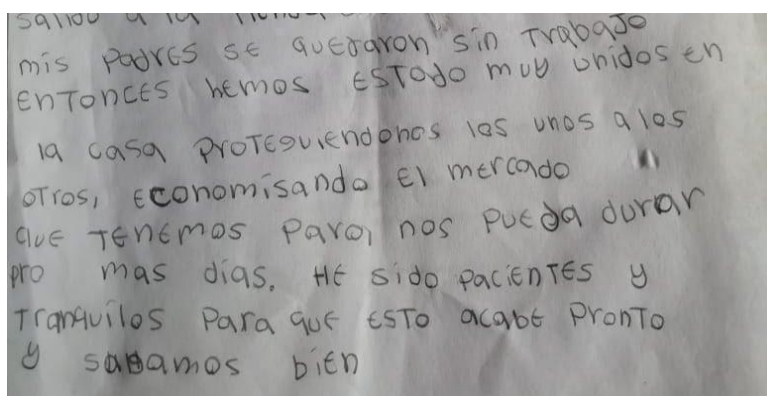 mis padres se quedaron sin trabajo
entonces hemos estado muy unidos en
la casa proteguiendonos los unos a los
otros, economisando el mercado
que tenemos para nos pueda durar
pro mas dias. He sido pacientes y
tranquilos para que esto acabe pronto
y sabamos bien